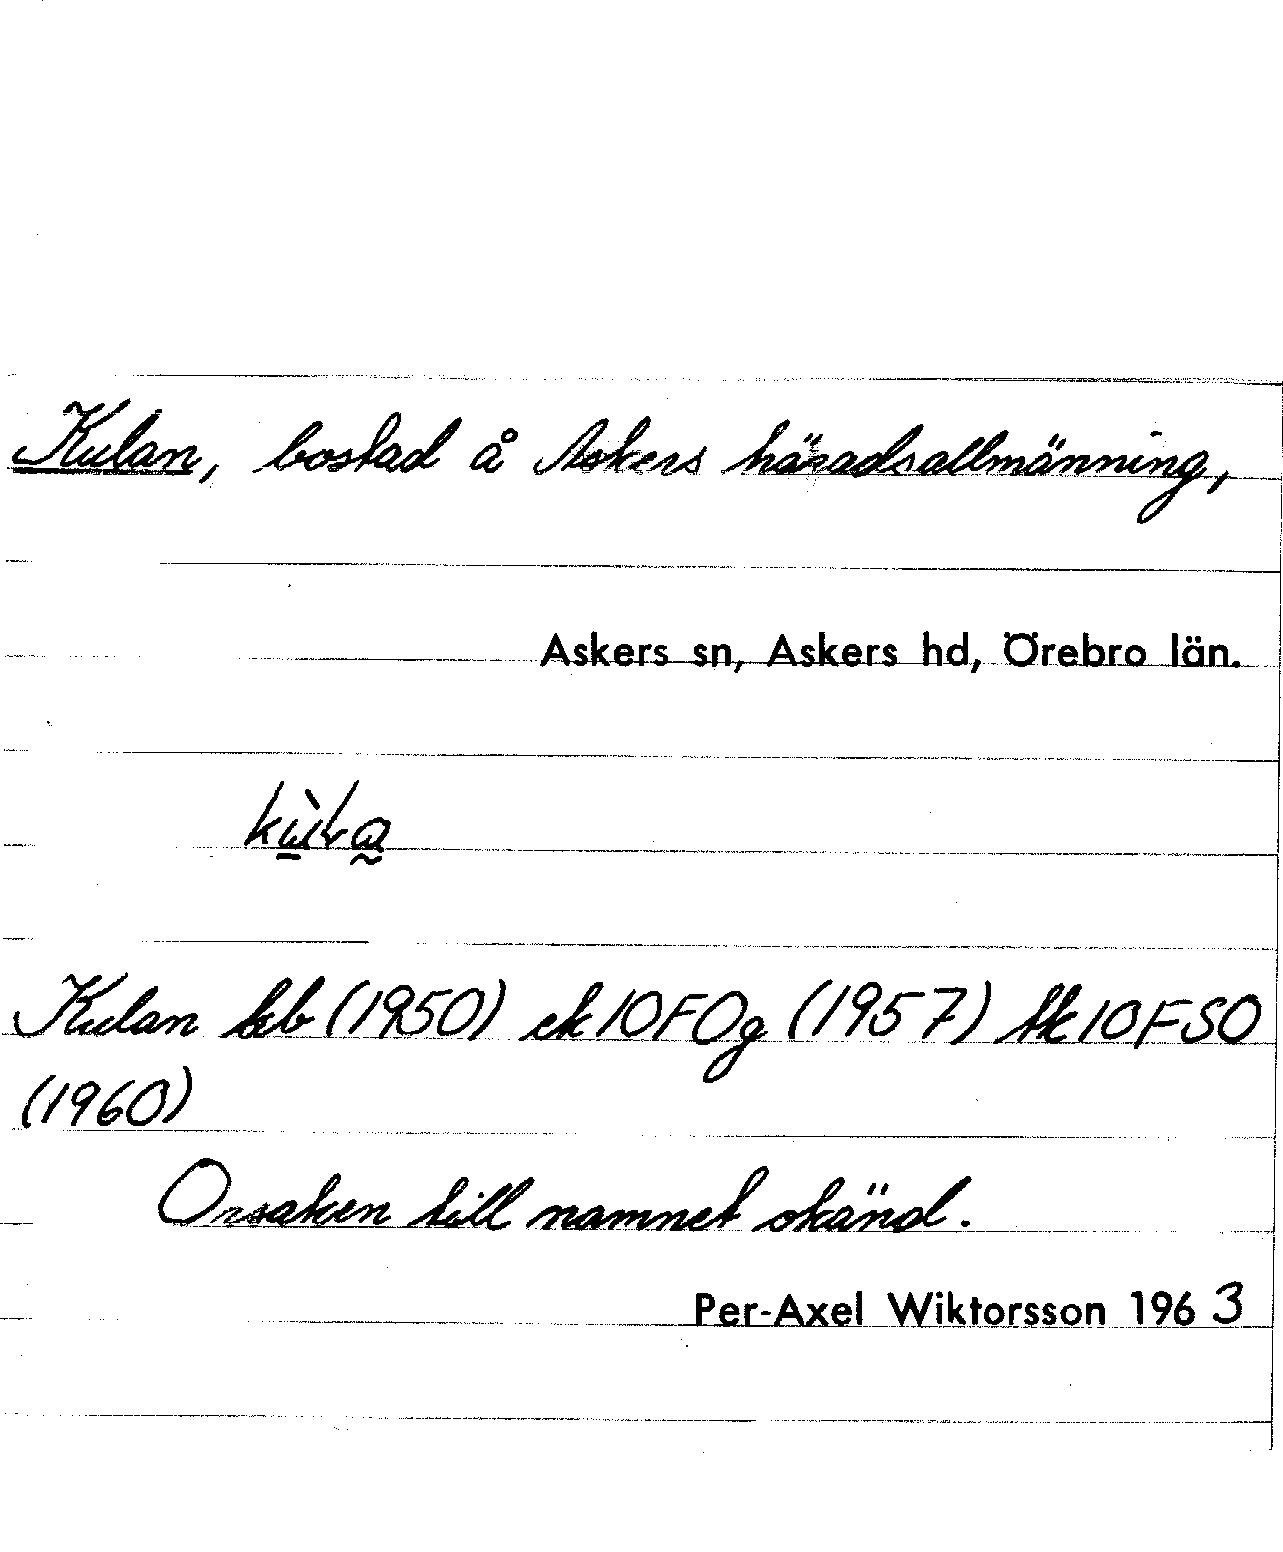 Kulan, bostad å Askers häradsallmänning,
Askers sn, Askers hd, Örebro län.
Kulan kb (1950) ek 10F0g (1957) tk 10FSO
(1960)
Orsaken till namnet okänd.
Per-Axel Wiktorsson 1963